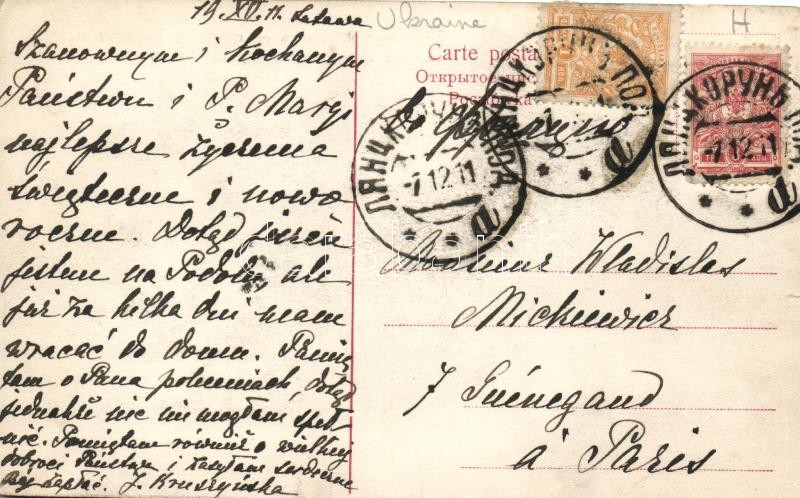 19. XII. 11. Latawa
Ukraine
H
Szanownym i Kochanym
Państwu i P. Maryi
najlepsze życzenia
świąteczne i nowo
roczne. Dotąd jeszcze
jestem na Podolu ale
już za kilka dni mam
wracać do domu. Pamię
tam o Pana poleceniach, dotąd
jednakże nic nie mogłam speł-
nić. Pamiętam również o wielkiej
dobroci Państwa i zasyłam serdeczne
J. Kruszyńska
Carte posta
Открытое
Россійка
ЛЯНЦКОРУНЪ ПОД.
7 12 11
а
ЛЯНЦКОРУНЪ ПОД.
а
ЛЯНЦКОРУНЪ ПОД.
7 12 11
а
Monsieur Wladislas
Mickiewicz
7 Guénegaud
à Paris